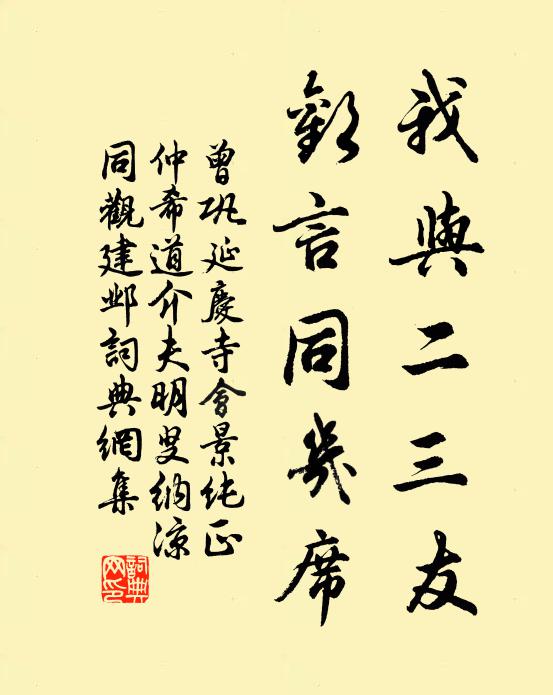 我與二三友
歡言同幾席
曾巩延慶寺會景純正
仲希道介夫明叟納涼
同觀建邺詞典網集
詞典
网印